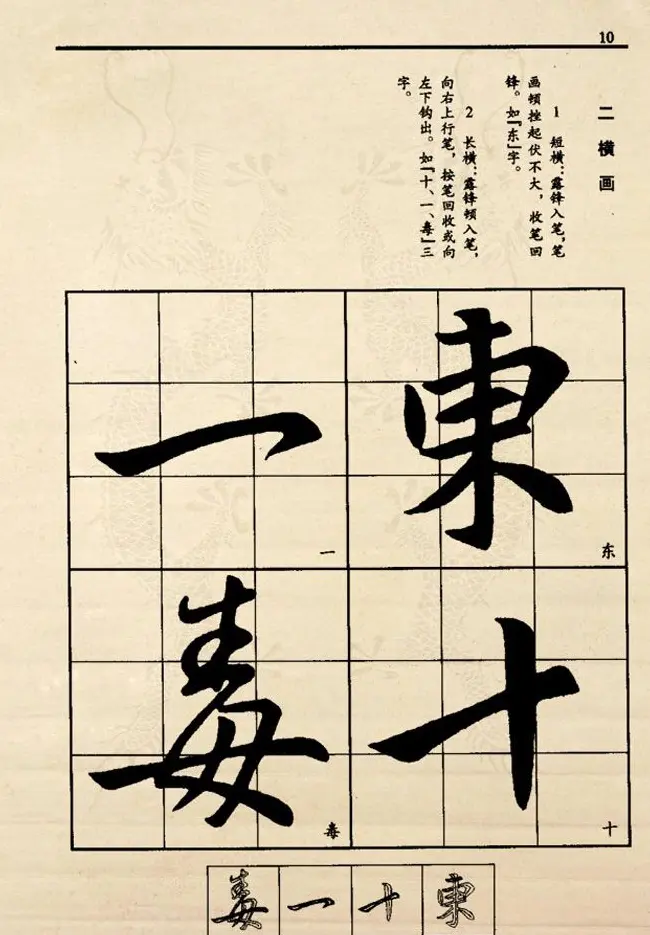 10
二 横画
1 短横：露锋入笔，笔
画顿挫起伏不大，收笔回
锋。如『东』字。
2 长横：露锋顿入笔，
向右上行笔，按笔回收或向
左下钩出。如『十、一、毒』三
字。
東
东
十
十
一
一
毒
毒
毒 一 十 東